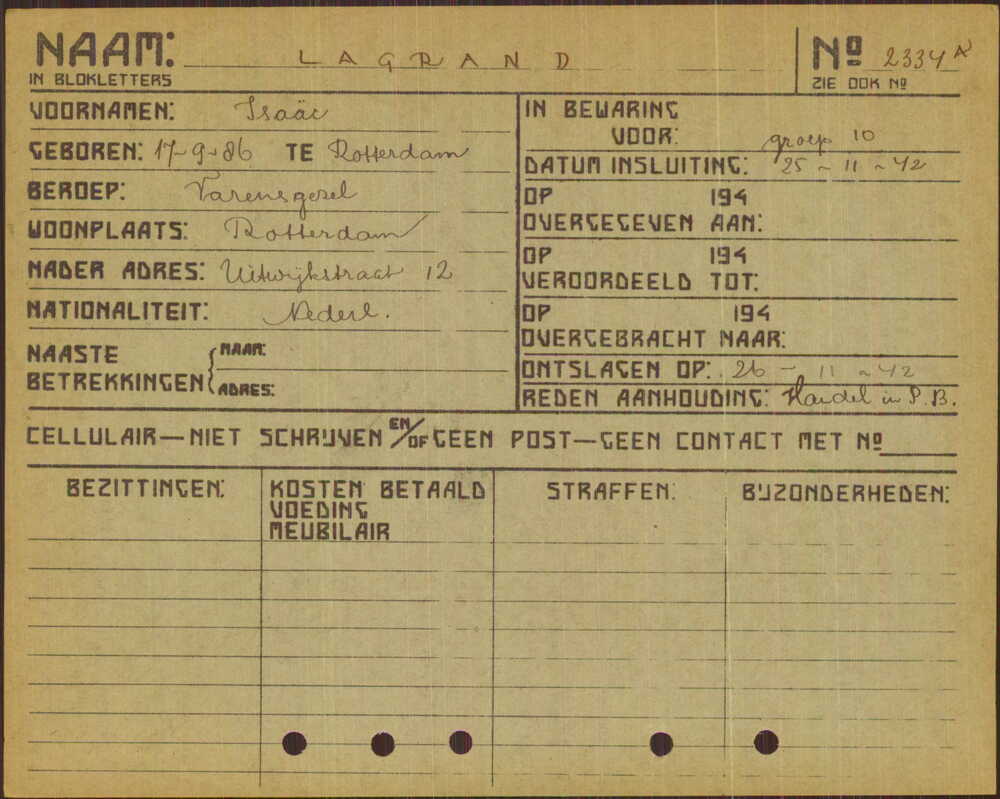 NAAM: LAGRAND
IN BLOKLETTERS
Nº 2334 A
ZIE OOK Nº
VOORNAMEN: Isaäc
GEBOREN: 17-9-86 TE Rotterdam
BEROEP: Varensgezel
WOONPLAATS: Rotterdam
NADER ADRES: Uitwijkstraat 12
NATIONALITEIT: Nederl.
NAASTE BETREKKINGEN { NAAM:
ADRES:
IN BEWARING
VOOR: groep 10
DATUM INSLUITING: 25-11-42
OP 194
OVERGEGEVEN AAN:
OP 194
VEROORDEELD TOT:
OP 194
OVERGEBRACHT NAAR:
ONTSLAGEN OP: 26-11-42
REDEN AANHOUDING: Handel in P.B.
CELLULAIR—NIET SCHRIJVEN EN/OF GEEN POST—GEEN CONTACT MET Nº
BEZITTINGEN:
KOSTEN BETAALD
VOEDING
MEUBILAIR
STRAFFEN:
BIJZONDERHEDEN: